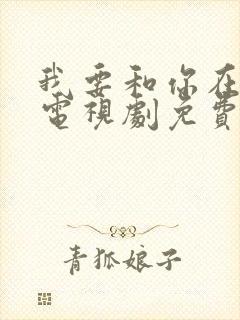 我要和你在
電視劇免費
青狐娘子